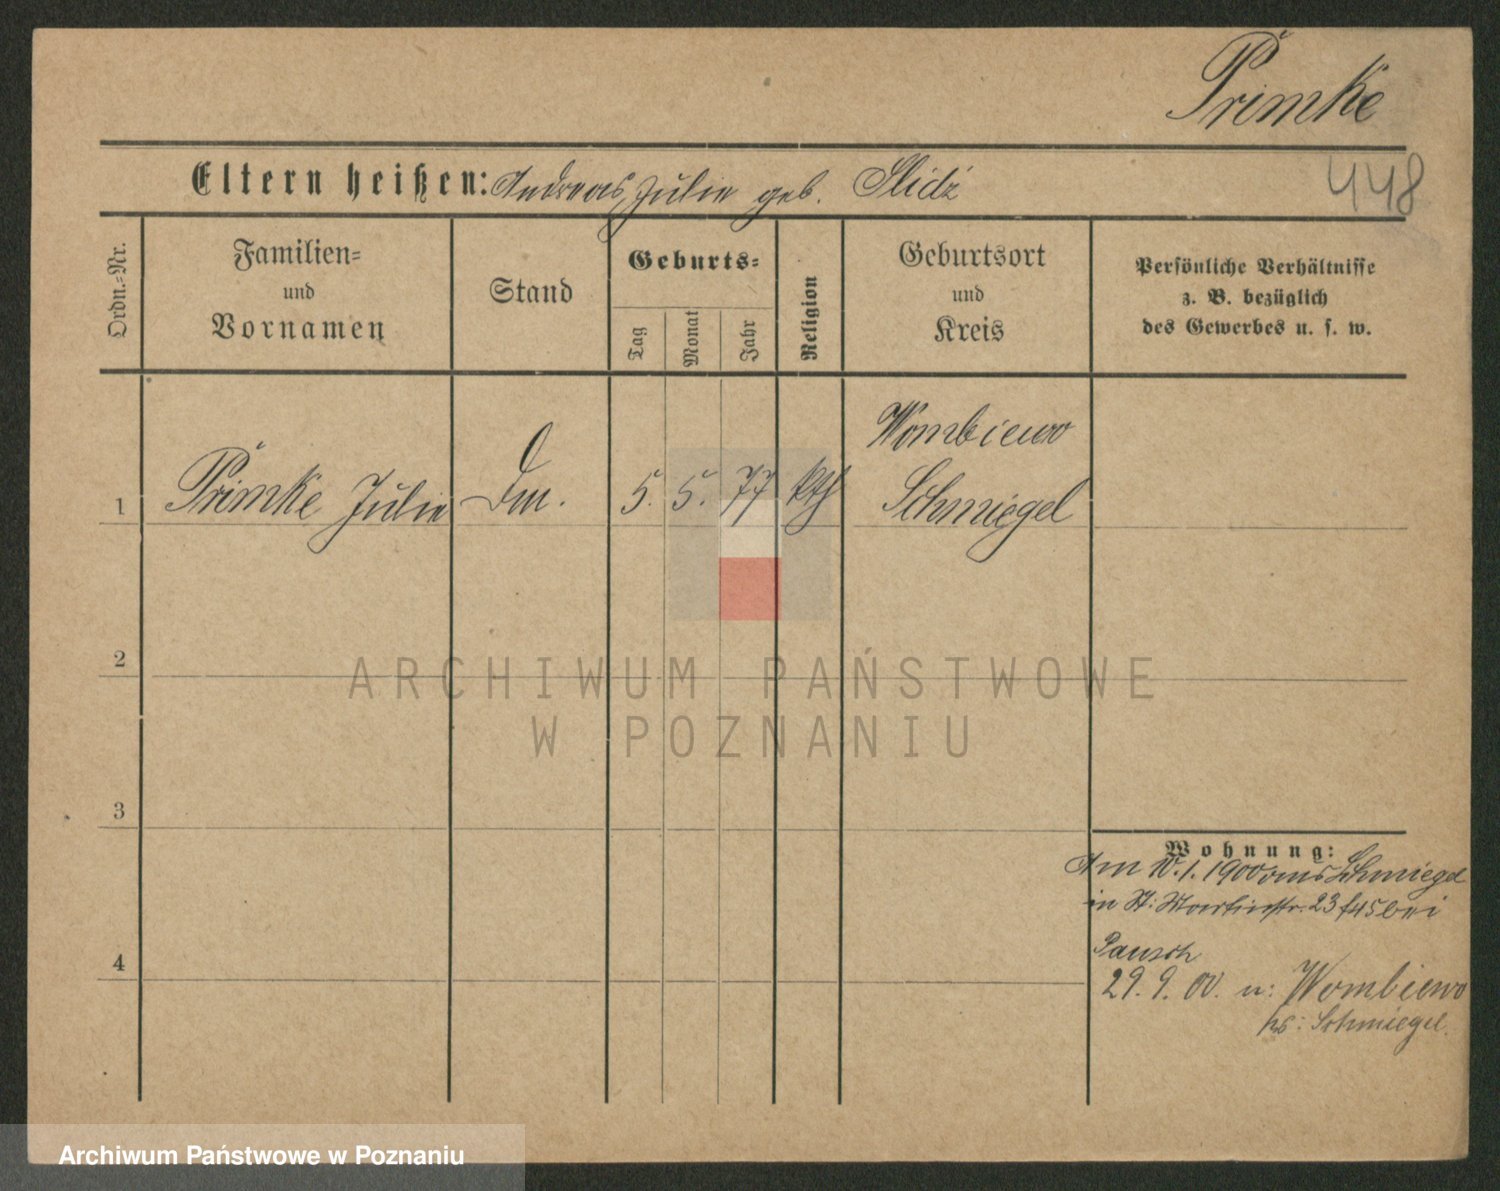 Primke
448
Eltern heißen: Andreas, Julie geb. Slidź
Ordn.-Nr.
Familien-
und
Vornamen
Stand
Geburts-
Tag
Monat
Jahr
Religion
Geburtsort
und
Kreis
Persönliche Verhältnisse
z. B. bezüglich
des Gewerbes u. s. w.
1 Primke Julie Dm. 5. 5. 77 kth Wombiewo
Schmiegel
2
3
4
Wohnung:
Am 10.1.1900 aus Schmiegel
in St: Martinstr. 23 bei
Pausch
29. 9. 00. n: Wombiewo
Schmiegel.
ARCHIWUM PAŃSTWOWE
W POZNANIU
Archiwum Państwowe w Poznaniu